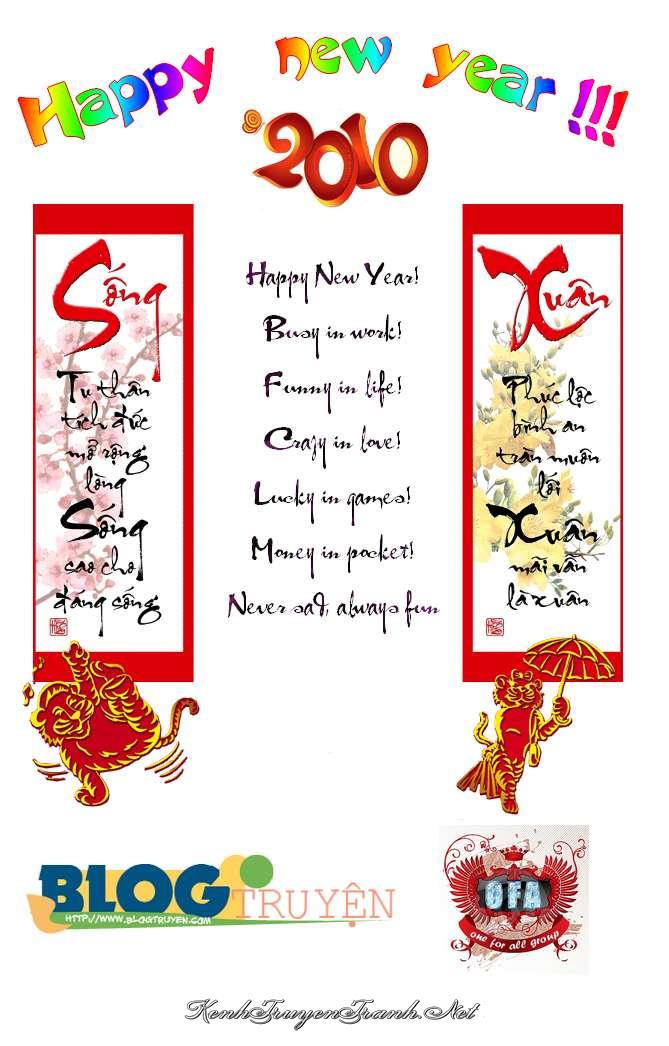 Happy new year !!!
2010
Sống
Tu thân
tích đức
mở rộng
lòng
Sống
sao cho
đáng sống
Happy New Year!
Busy in work!
Funny in life!
Crazy in love!
Lucky in games!
Money in pocket!
Never sad, always fun
Xuân
Phúc lộc
bình an
tràn muôn
lối
Xuân
mãi vẫn
là xuân
BLOG TRUYỆN
HTTP://WWW.BLOGTRUYEN.COM
OFA
one for all group
KenhTruyenTranh.Net